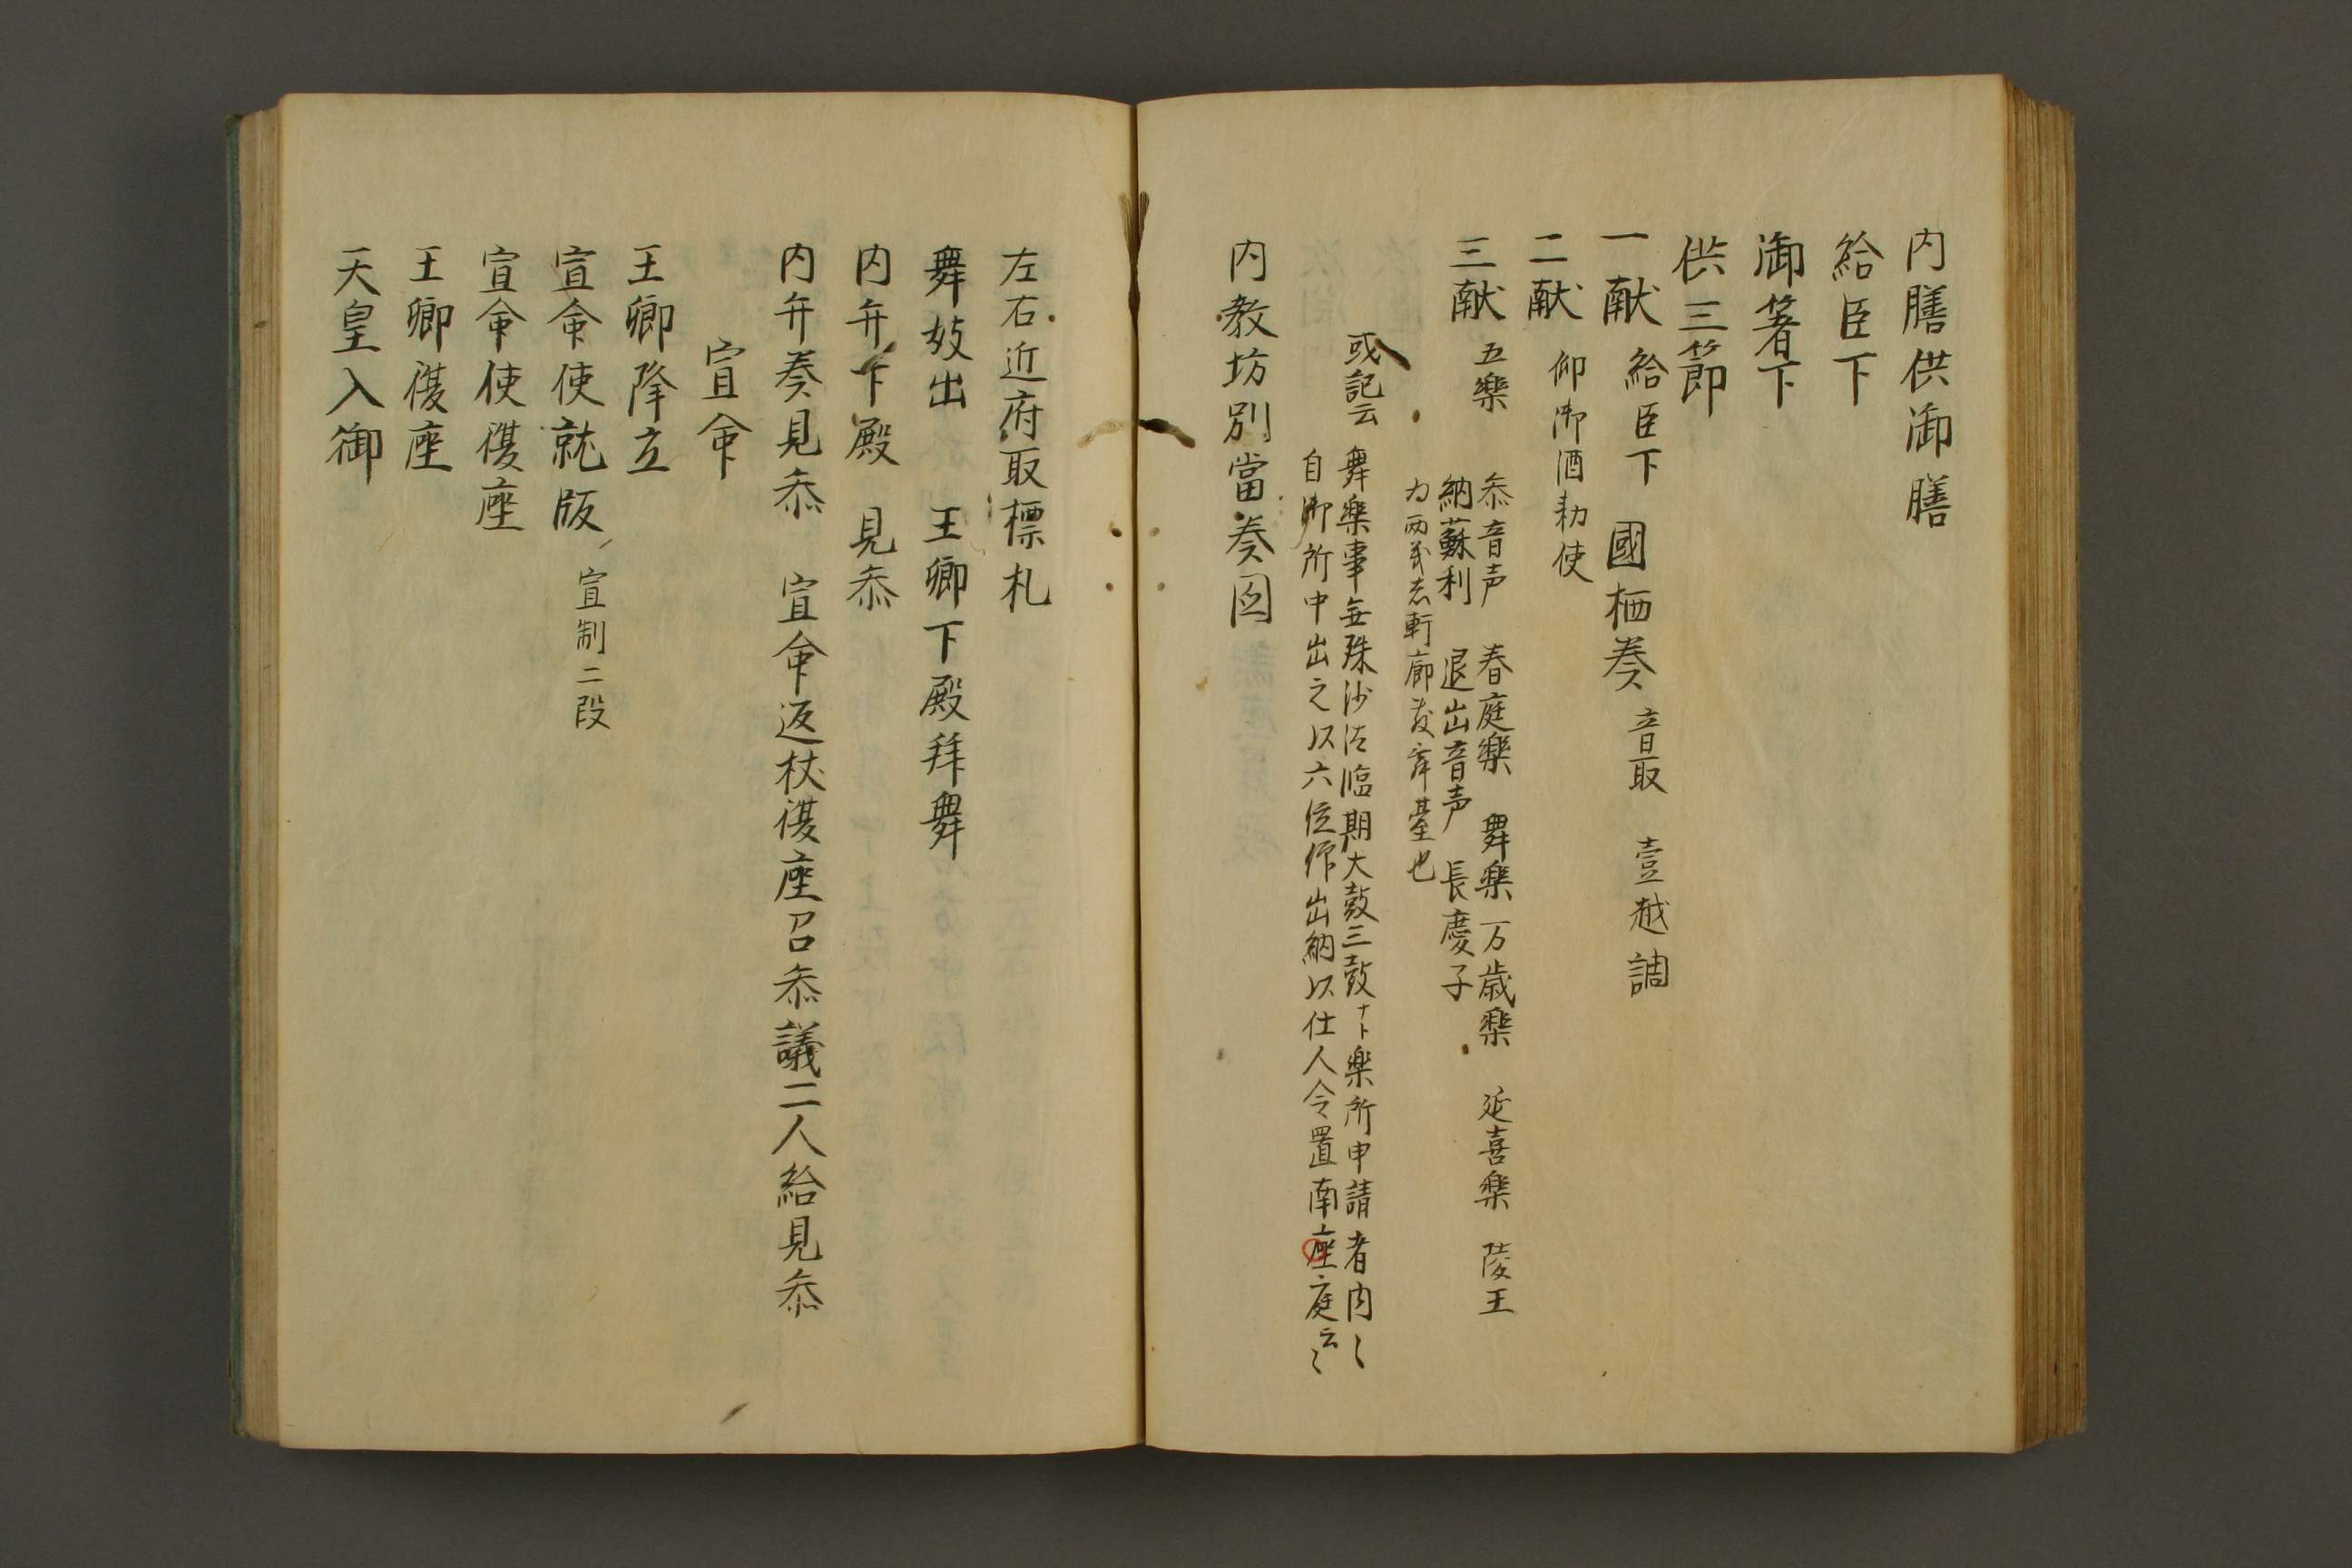 内膳供御膳
給臣下
御箸下
供三節
一献 給臣下 國栖奏 音取 壹越調
二献 仰御酒勅使
三献 五楽 叅音声 春庭楽 舞楽 万歳楽 延喜楽 陵王
納蘇利 退出音声 長慶子
軒廊 舞臺也
或記云 舞楽事無殊沙汰臨期大鼓三鼓ナト楽所申請者内〻
自御所中出之以六位作出納以仕人令置南座庭云〻
内教坊別當奏図
左右近府取標札
舞妓出 王卿下殿拜舞
内弁下殿 見叅
内弁奏見叅 宣命返杖復座召叅議二人給見叅
宣命
王卿降立
宣命使就版 宣制二段
宣命使復座
王卿復座
天皇入御